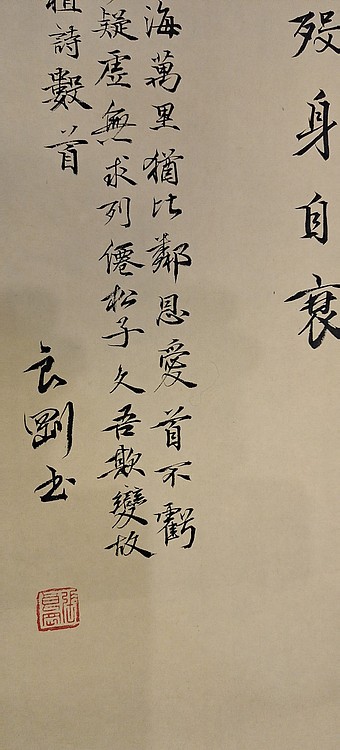 歿身自衰
海萬里猶比鄰恩愛首不虧
疑虛無求列僊松子久吾欺變故
詩數首
良剛书